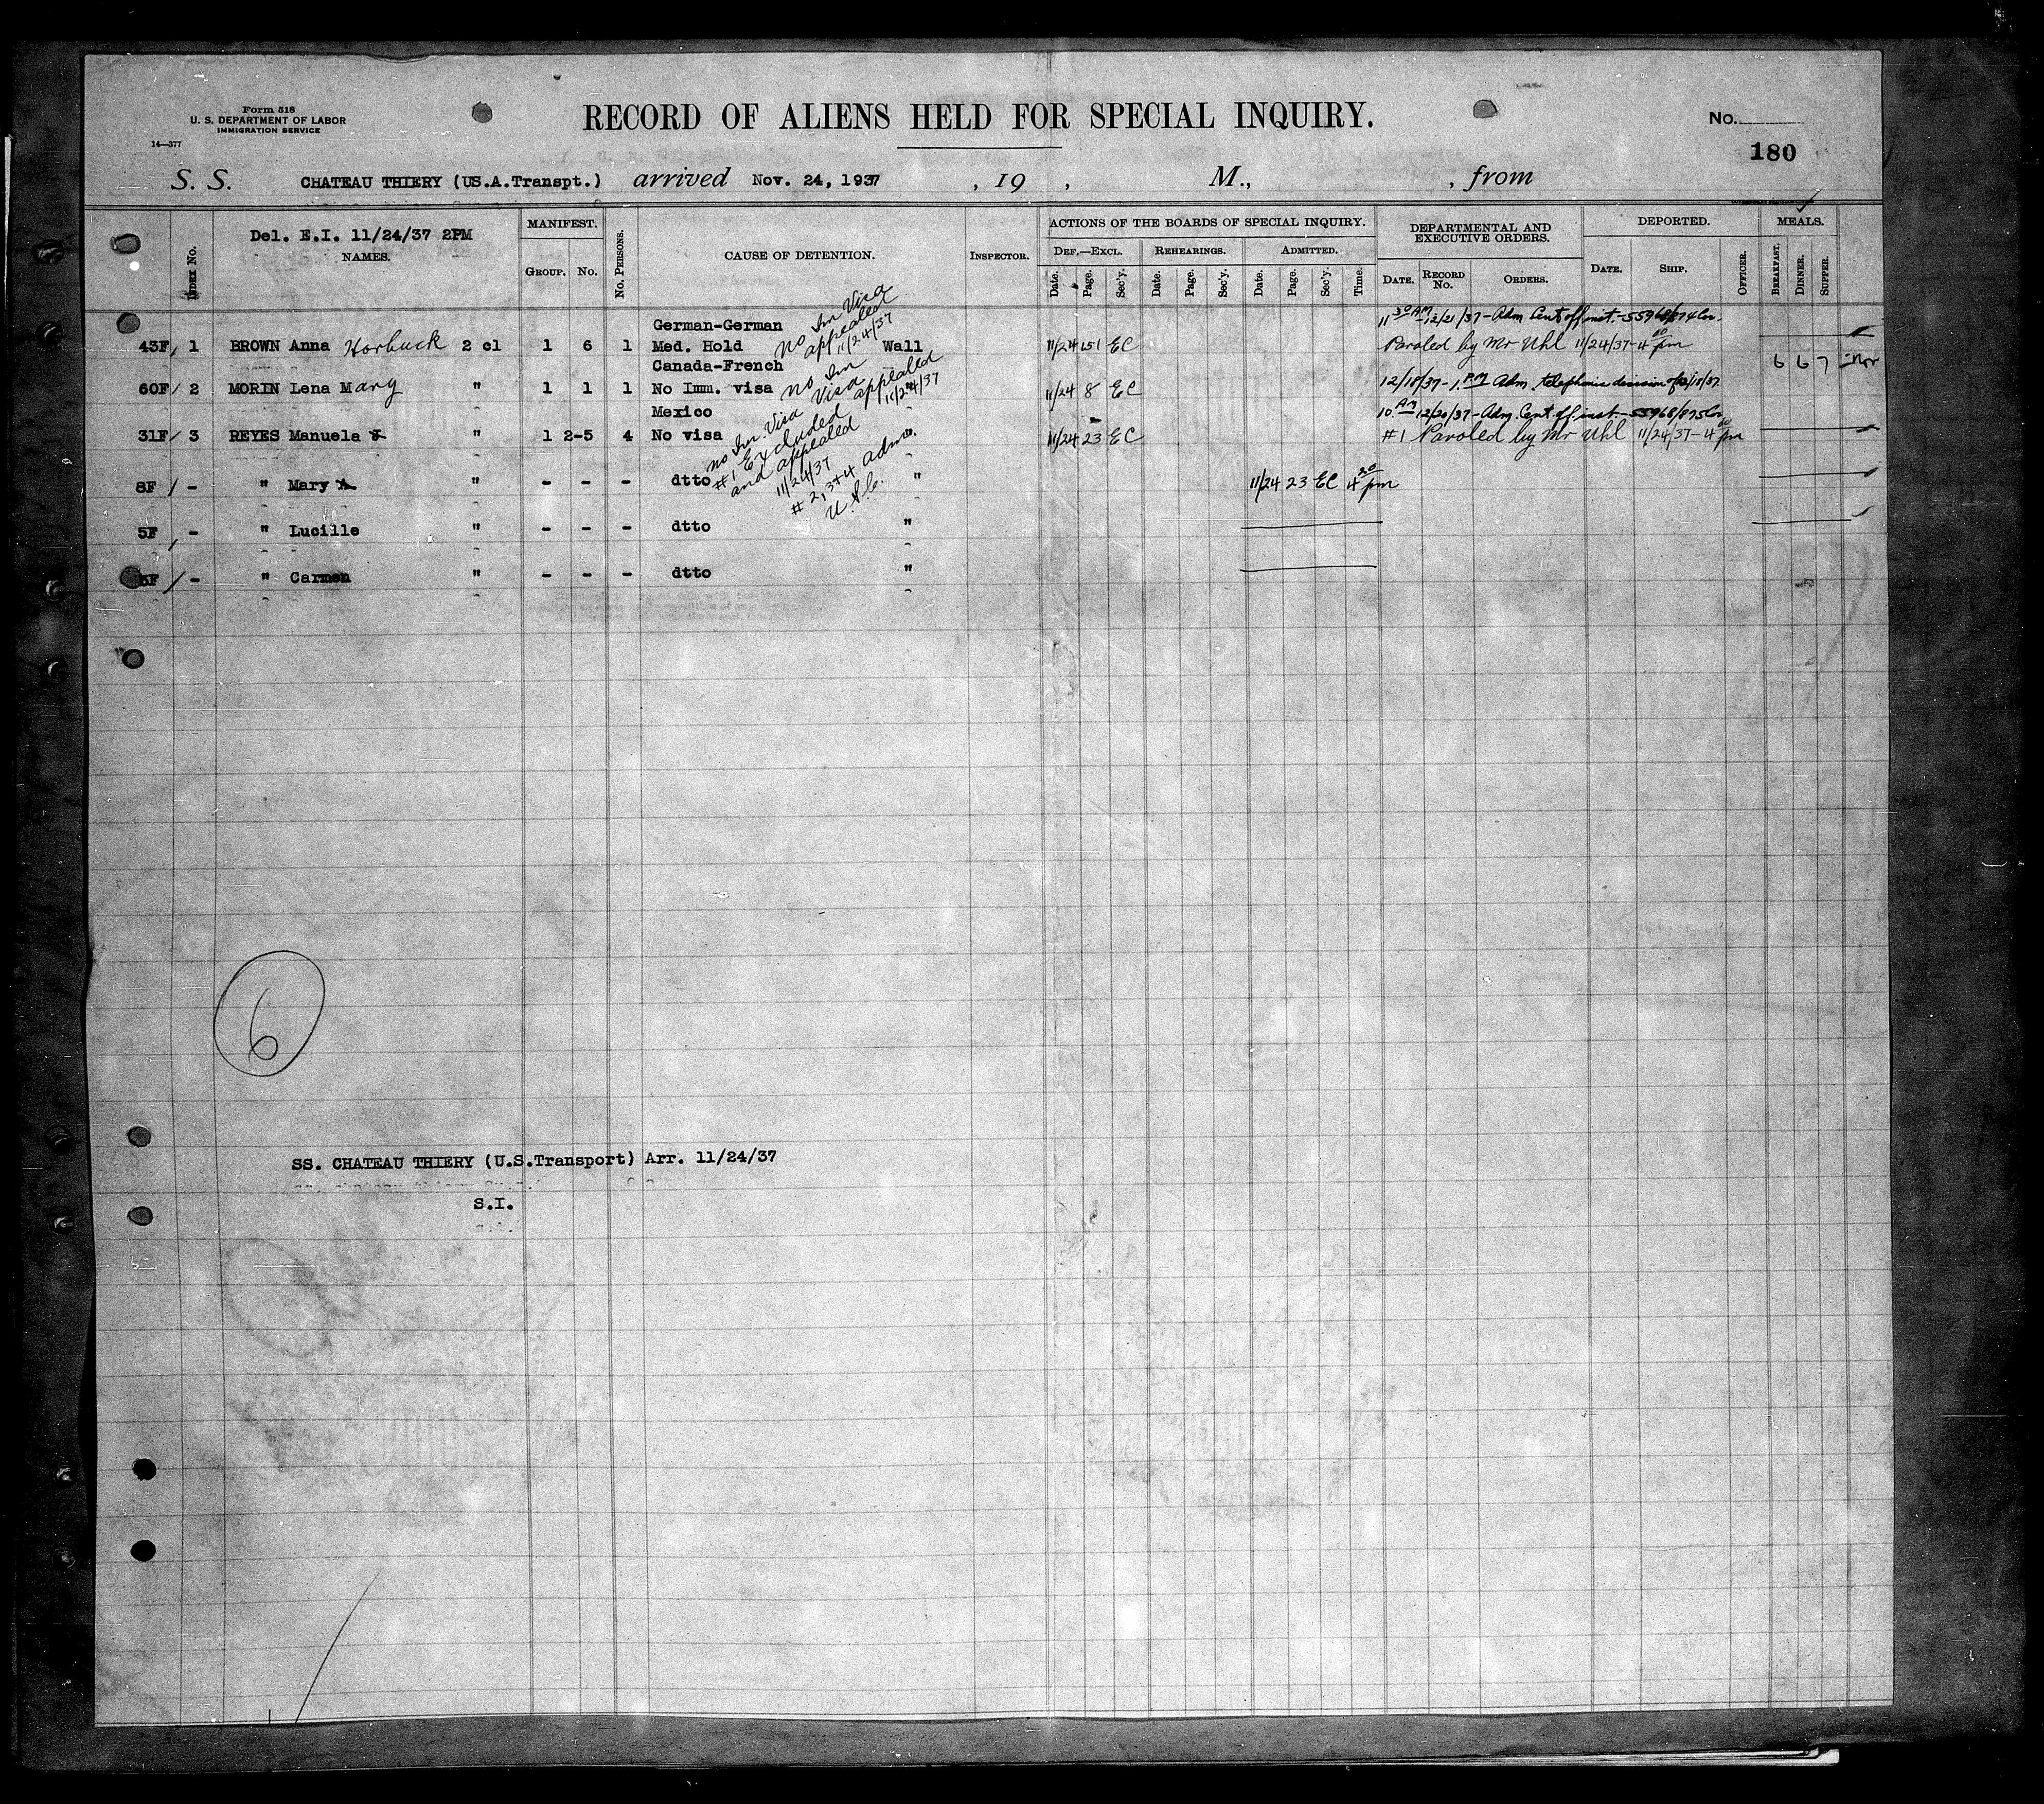 Form 518
U. S. DEPARTMENT OF LABOR
IMMIGRATION SERVICE
14—377
RECORD OF ALIENS HELD FOR SPECIAL INQUIRY.
No.
180
S. S. CHATEAU THIERY (US.A.Transpt.) arrived Nov. 24, 1937 , 19 , M., , from
Index No.
Del. E.I. 11/24/37 2PM
NAMES.
MANIFEST.
Group. No.
No. Persons.
CAUSE OF DETENTION.
Inspector.
ACTIONS OF THE BOARDS OF SPECIAL INQUIRY.
Def.—Excl. Rehearings. Admitted.
Date. Page. Sec'y. Date. Page. Sec'y. Date. Page. Sec'y. Time.
DEPARTMENTAL AND EXECUTIVE ORDERS.
Date. Record No. Orders.
DEPORTED.
Date. Ship. Officer.
MEALS.
Breakfast. Dinner. Supper.
German-German no Im Visa appealed 11/24/37 11 30 AM - 12/21/37 - Adm Cent off inst. - 55968/874 Cor.
43F, 1 BROWN Anna Horbuck 2 cl 1 6 1 Med. Hold Wall 11/24 151 EC Paroled by Mr Uhl 11/24/37 - 4 00 pm
Canada-French no Im Visa appealed 11/24/37 6 6 7
60F/ 2 MORIN Lena Mary " 1 1 1 No Imm. visa " 11/24 8 EC 12/18/37 - 1. PM Adm. telephonic division of 12/18/37
Mexico no Im. Visa #1 Excluded and appealed 11/24/37 10 AM 12/20/37 - Adm. Cent. off. inst - 55968/875 Cor.
31F/ 3 REYES Manuela " 1 2-5 4 No visa " 11/24 23 EC #1 Paroled by Mr Uhl 11/24/37 - 4 00 pm
8F / - " Mary " - - - dtto # 2, 3 + 4 adm. U.S.C. " 11/24 23 EC 4 20 pm
5F / - " Lucille " - - - dtto "
5F / - " Carmen " - - - dtto "
6
SS. CHATEAU THIERY (U.S.Transport) Arr. 11/24/37
S.I.